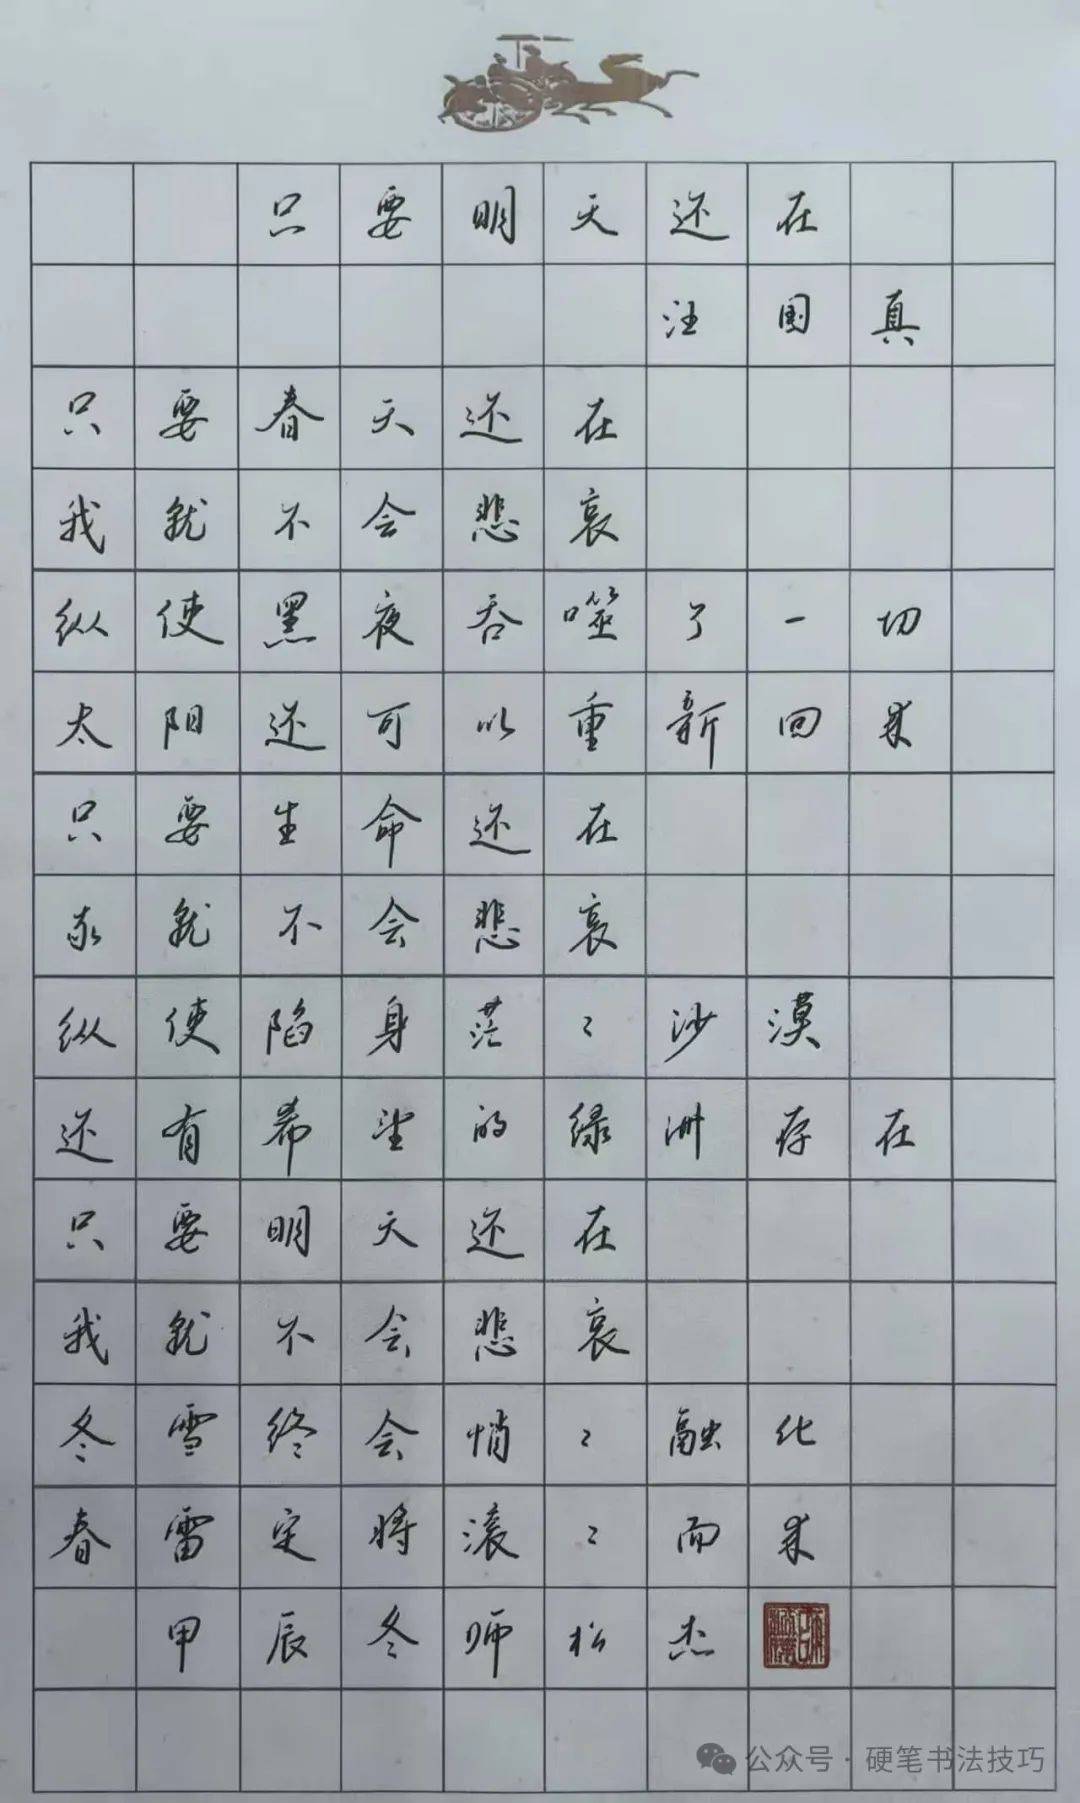 只要明天还在
汪国真
只要春天还在
我就不会悲哀
纵使黑夜吞噬了一切
太阳还可以重新回来
只要生命还在
我就不会悲哀
纵使陷身茫々沙漠
还有希望的绿洲存在
只要明天还在
我就不会悲哀
冬雪终会悄々融化
春雷定将滚々而来
甲辰冬师松杰
公众号·硬笔书法技巧